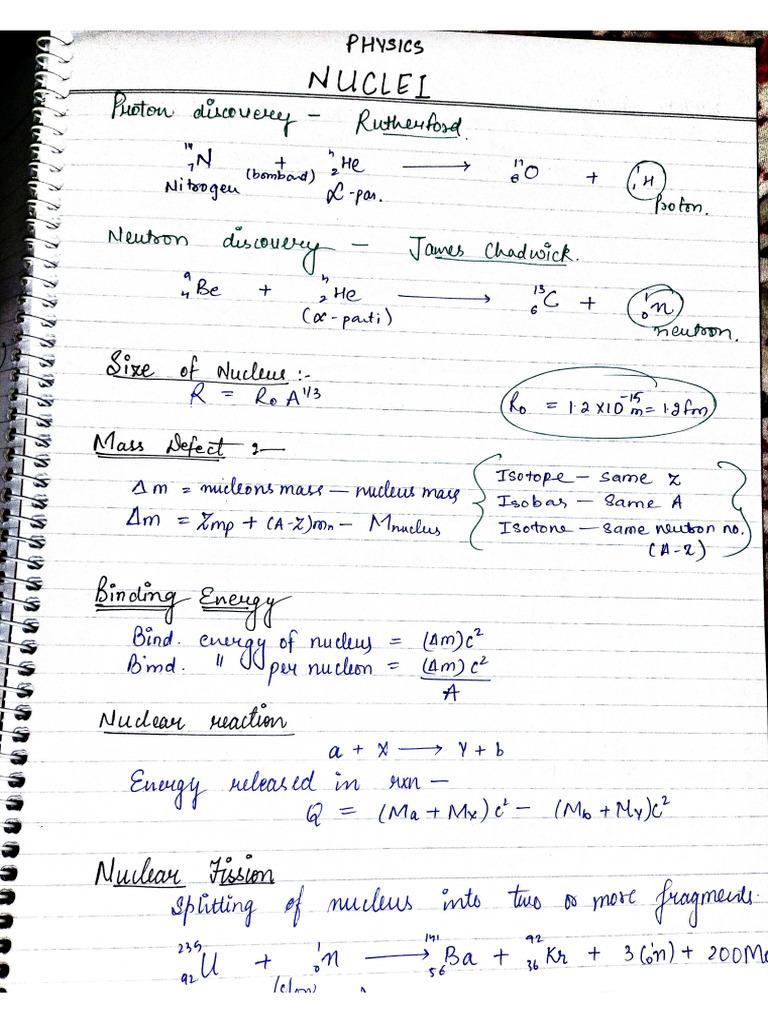 PHYSICS
NUCLEI
Proton discovery - Rutherford.
¹⁴₇N + ⁴₂He ⟶ ¹⁷₈O + ¹₁H
Nitrogen (bombard) α-par. proton.
Neutron discovery - James Chadwick.
⁹₄Be + ⁴₂He ⟶ ¹³₆C + ¹₀n
(α-parti) neutron.
Size of Nucleus :-
R = R₀ A^1/3
R₀ = 1.2 × 10⁻¹⁵ m = 1.2 fm
Mass Defect :-
Δm = nucleons mass - nucleus mass
Δm = Zmp + (A-Z)mn - Mnucleus
Isotope - same Z
Isobar - same A
Isotone - same neutron no.
(A-Z)
Binding Energy
Bind. energy of nucleus = (Δm)c²
Bind. " per nucleon = (Δm)c²/A
Nuclear reaction
a + X ⟶ Y + b
Energy released in rxn -
Q = (Ma + Mx)c² - (Mb + My)c²
Nuclear Fission
Splitting of nucleus into two or more fragments.
²³⁵₉₂U + ¹₀n ⟶ ¹⁴¹₅₆Ba + ⁹²₃₆Kr + 3(¹₀n) + 200 Me